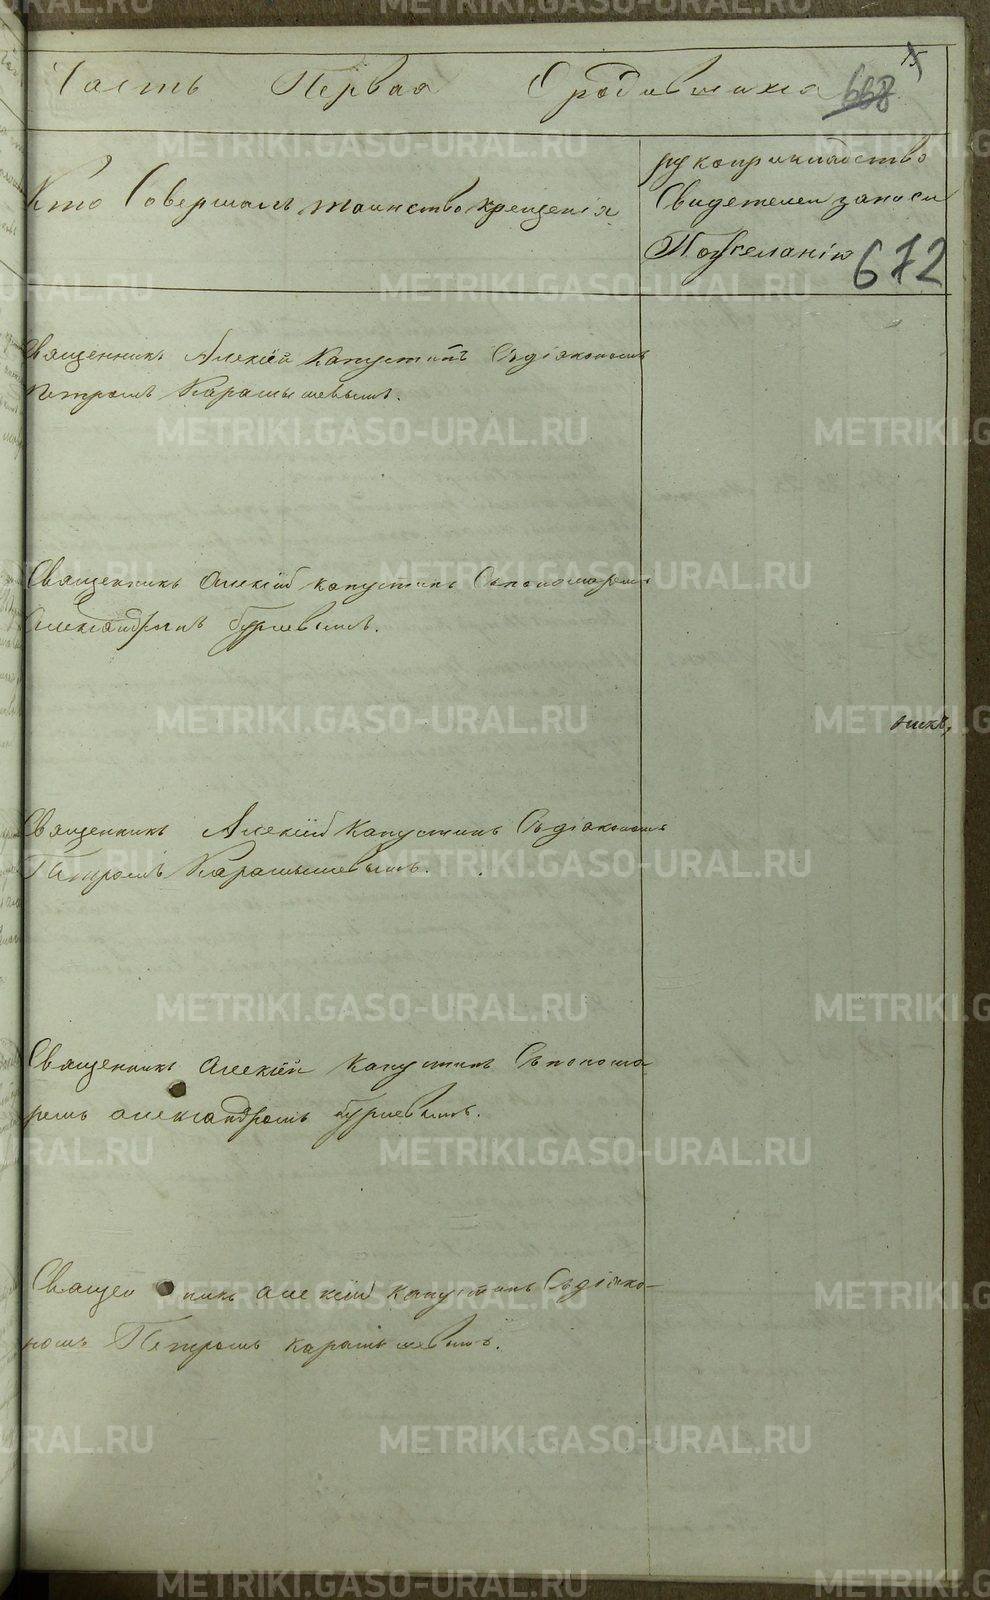 Часть Первая О родившихся 668 15
Кто Совершалъ таинство крещенія
рукоприкладство
Свидетелей записи
По Желанію 672
Священникъ Алексій Капустинъ Съдіякономъ
Петромъ Карамышевымъ.
Священникъ алексій капустинъ Съпономаремъ
Александромъ
Священникъ Алексій Капустинъ Съдіякономъ
Петромъ Карамышевымъ.
Священникъ алексій Капустинъ Съпонома
ремъ александромъ
Священникъ алексій капустинъ Съдіяко-
номъ Петромъ карамышевымъ.
METRIKI.GASO-URAL.RU